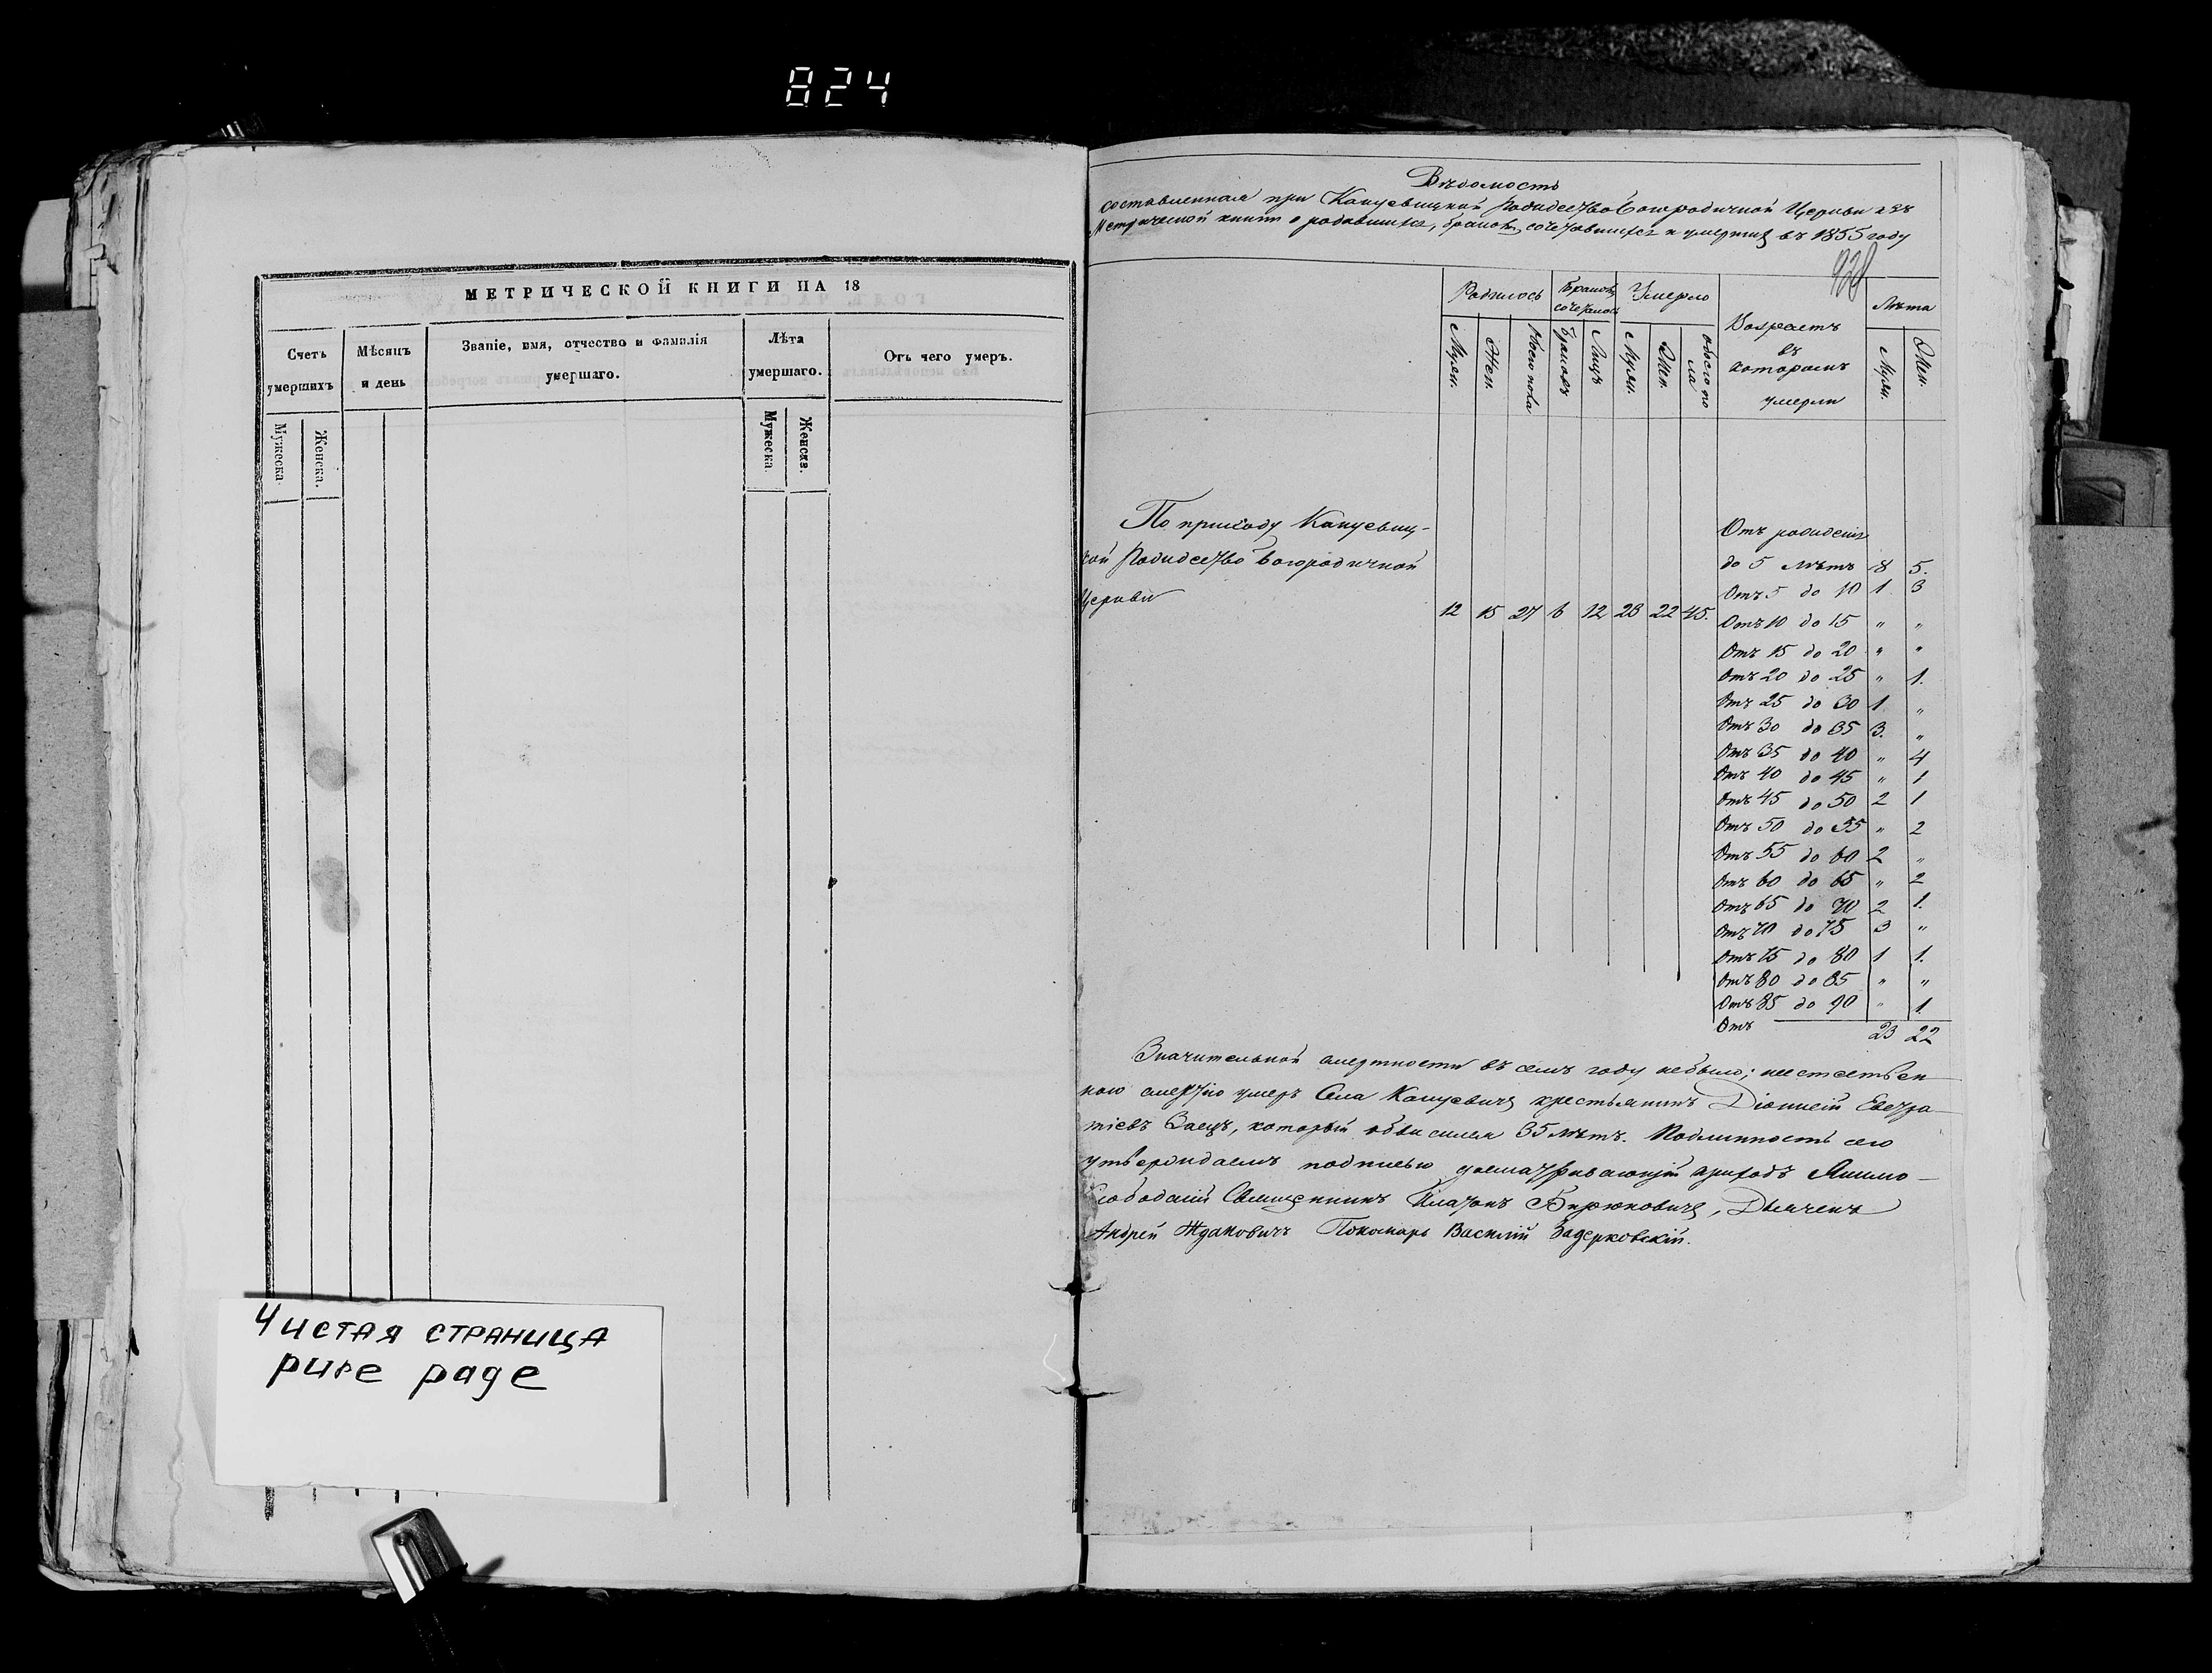 824
МЕТРИЧЕСКОЙ КНИГИ НА 18
Счетъ умершихъ
Мѣсяцъ и день
Званіе, имя, отчество и фамилія умершаго.
Лѣта умершаго.
Отъ чего умеръ.
Мужеска.
Женска.
Мужеска.
Женска.
Чистая страница
pure page
Вѣдомость
составленная при Канусвицкой Рождество Богородичной Церкви изъ
Метрической книги о родившихся, бракомъ сочетавшихся и умершихъ въ 1855 году
928
Родилось
Бракомъ сочеталось
Умерло
Возрастъ въ которомъ умерли
Лѣта
Муж.
Жен.
Обоего пола
Браковъ
Лицъ
Муж.
Жен.
Обоего пола
Муж.
Жен.
По приходу
кой Рождество Богородичной
Церкви
12 15 27 6 12 23 22 45.
Отъ рожденія
до 5 лѣтъ 8 5.
Отъ 5 до 10 1 3
Отъ 10 до 15 " "
Отъ 15 до 20 " "
Отъ 20 до 25 " 1.
Отъ 25 до 30 1 "
Отъ 30 до 35 3. "
Отъ 35 до 40 " 4
Отъ 40 до 45 " 1
Отъ 45 до 50 2 1
Отъ 50 до 55 " 2
Отъ 55 до 60 2 "
Отъ 60 до 65 " 2
Отъ 65 до 70 2 1.
Отъ 70 до 75 3 "
Отъ 75 до 80 1 1.
Отъ 80 до 85 " "
Отъ 85 до 90 " 1
Отъ 23 22
Значительной смертности въ семъ году небыло; неестествен
ною смертію умеръ Села крестьянинъ Діонисій Евстра
тіевъ Заецъ, который 35 лѣтъ. Подлинность сего
утверждаемъ подписью приходъ
Слободскій Священникъ Платонъ Бирюковичъ, Дьячекъ
Андрей Ждановичъ Пономарь Василій Задерковскій.